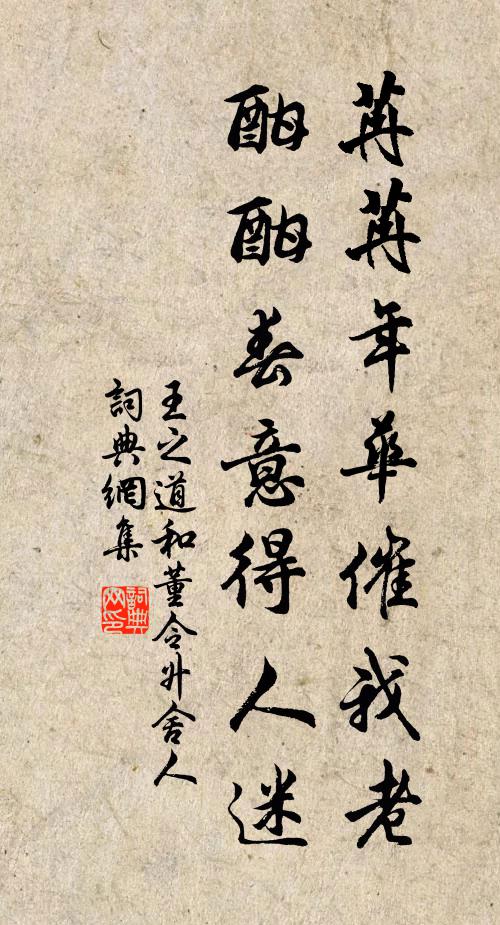 苒苒年華催我老
酣酣春意得人迷
王之道和董令升舍人
詞典網集
詞典
网印